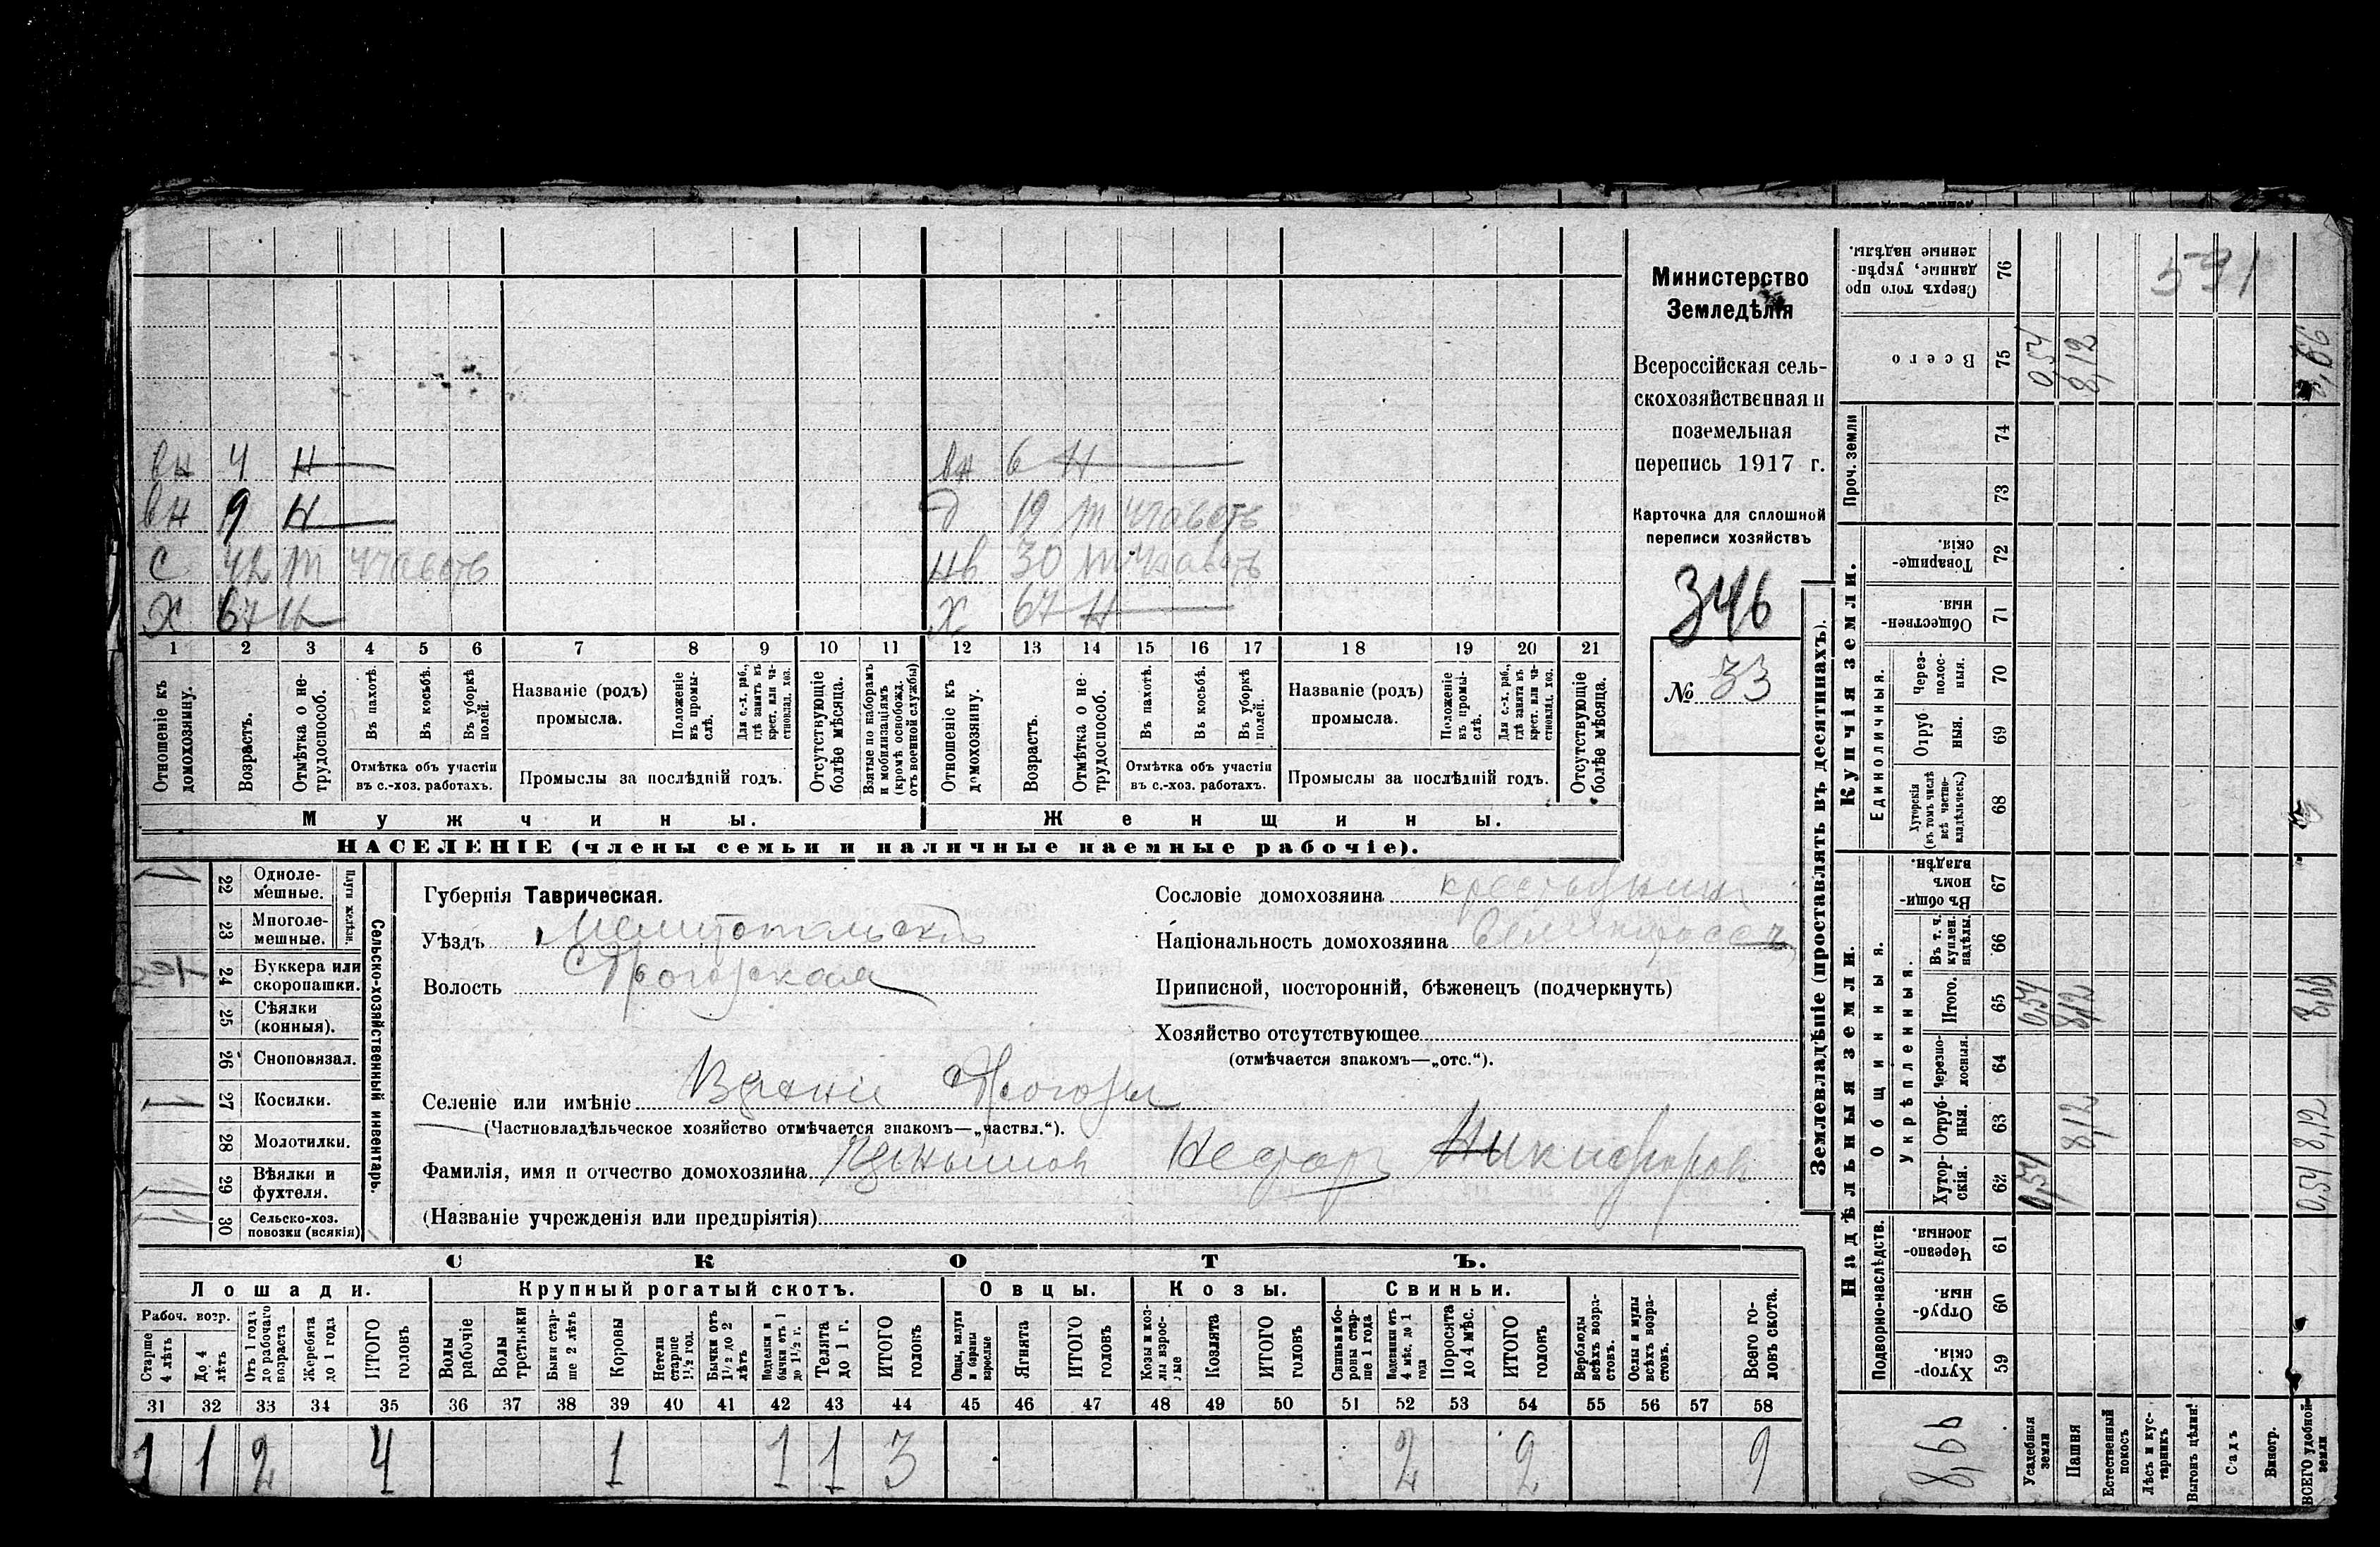 591
Министерство
Земледѣлія
Всероссійская сель-
скохозяйственная и
поземельная
перепись 1917 г.
Карточка для сплошной
переписи хозяйствъ
346
№ 33
вн 4 н вн 6 н
вн 9 н д 19 т
с 42 т 30 т
х 67 н х 67 н
1 2 3 4 5 6 7 8 9 10 11 12 13 14 15 16 17 18 19 20 21
Отношеніе къ домохозяину.
Возрастъ.
Отмѣтка о не-трудоспособ.
Въ пахотѣ.
Въ косьбѣ.
Въ уборкѣ полей.
Отмѣтка объ участіи
въ с.-хоз. работахъ.
Названіе (родъ)
промысла.
Положеніе въ промы-слѣ.
Для с.-х. раб., гдѣ занятъ въ крест. или ча-стновлад. хоз.
Промыслы за послѣдній годъ.
Отсутствующіе болѣе мѣсяца.
Взятые по наборамъ и мобилизаціямъ (кромѣ освобожд. отъ военной службы)
Отношеніе къ домохозяину.
Возрастъ.
Отмѣтка о не-трудоспособ.
Въ пахотѣ.
Въ косьбѣ.
Въ уборкѣ полей.
Отмѣтка объ участіи
въ с.-хоз. работахъ.
Названіе (родъ)
промысла.
Положеніе въ промы-слѣ.
Для с.-х. раб., гдѣ занята въ крест. или ча-стновлад. хоз.
Промыслы за послѣдній годъ.
Отсутствующіе болѣе мѣсяца.
Мужчины. Женщины.
НАСЕЛЕНІЕ (члены семьи и наличные наемные рабочіе).
Сельско-хозяйственный инвентарь.
Плуги желѣзн.
22 Одноле-мешные. 1
23 Многоле-мешные.
24 Буккера или скоропашки.
25 Сѣялки (конныя).
26 Сноповязал.
27 Косилки. 1
28 Молотилки.
29 Вѣялки и фухтеля.
30 Сельско-хоз. повозки (всякія)
Губернія Таврическая.
Уѣздъ Мелитопольскій
Волость
Сословіе домохозяина крестьянинъ
Національность домохозяина
Приписной, посторонній, бѣженецъ (подчеркнуть)
Хозяйство отсутствующее
(отмѣчается знакомъ—„отс.“).
Селеніе или имѣніе
(Частновладѣльческое хозяйство отмѣчается знакомъ—„частвл.“).
Фамилія, имя и отчество домохозяина Никифоров
(Названіе учрежденія или предпріятія)
СКОТЪ.
Лошади. Крупный рогатый скотъ. Овцы. Козы. Свиньи.
Рабоч. возр.
Старше 4 лѣтъ
До 4 лѣтъ
Отъ 1 года до рабочаго возраста
Жеребята до 1 года
ИТОГО головъ
Волы рабочіе
Волы третьяки
Быки стар-ше 2 лѣтъ
Коровы
Нетели старше 1½ год.
Бычки отъ 1½ до 2 лѣтъ
Подтелки и бычки отъ 1 до 1½ г.
Телята до 1 г.
ИТОГО головъ
Овцы, валухи и бараны взрослые
Ягнята
ИТОГО головъ
Козы и коз-лы взрос-лые
Козлята
ИТОГО головъ
Свиньи и бо-ровы стар-ше 1 года
Подсвинки отъ 4 мѣс. до 1 года
Поросята до 4 мѣс.
ИТОГО головъ
Верблюды всѣхъ возра-стовъ.
Ослы и мулы всѣхъ возра-стовъ.
Всего го-ловъ скота.
31 32 33 34 35 36 37 38 39 40 41 42 43 44 45 46 47 48 49 50 51 52 53 54 55 56 57 58
1 1 2 4 1 1 1 3 2 2 9
Землевладѣніе (проставлять въ десятинахъ).
Надѣльныя земли.
Купчія земли.
Проч. земли
Подворно-наслѣдств.
Общинныя.
Укрѣпленныя.
Единоличныя.
Хутор-скія. 59
Отруб-ныя. 60
Черезпо-лосныя. 61
Хутор-скія. 62 0,54
Отруб-ныя. 63 8,12
Черезпо-лосныя. 64
Итого. 65 0,54 8,12 8,66
Въ т. ч. куплен. надѣлы. 66
Въ общи-номъ владѣн. 67
Хуторскія (въ томъ числѣ всѣ частно-владѣльческ.) 68
Отруб-ныя. 69
Через-полос-ныя. 70
Обществен-ныя. 71
Товарище-скія. 72
73
74
Всего 75 0,54 8,12 8,66
Сверхъ того про-данные, укрѣп-ленные надѣлы. 76
8,66
Усадебныя земли
Пашня
Естественный покосъ
Лѣсъ и кус-тарникъ
Выгонъ цѣлин.
Садъ
Виногр.
ВСЕГО удобной земли